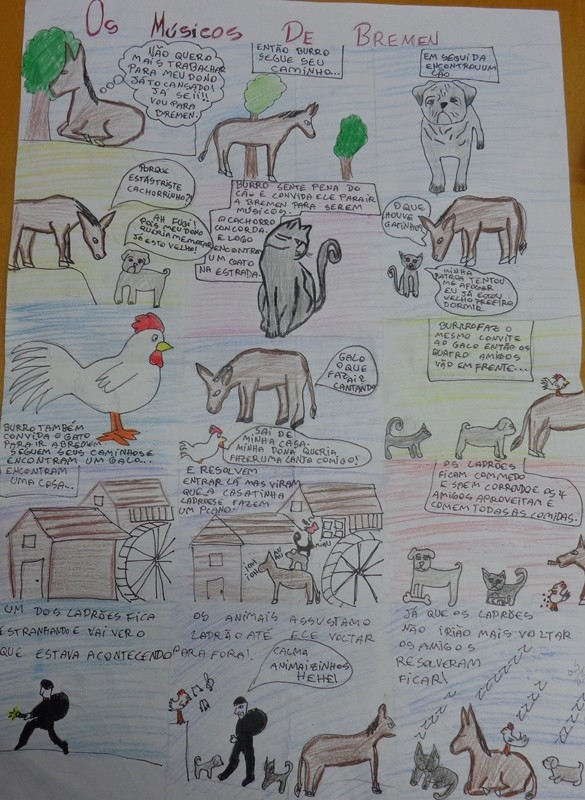 Os Músicos De Bremen
NÃO QUERO
MAIS TRABALHAR
PARA MEU DONO
JÁ TO CANSADO!
JÁ SEI!!
VOU PARA
BREMEN.
ENTÃO BURRO
SEGUE SEU
CAMINHO...
EM SEGUIDA
ENCONTROU UM
CÃO.
PORQUE
ESTÁS TRISTE
CACHORRINHO?
AH FUGI!
POIS MEU DONO
QUERIA ME MATAR
JÁ ESTO VELHO!
BURRO SENTE PENA DO
CÃO E CONVIDA ELE PARA IR
A BREMEN PARA SEREM
MÚSICOS.
O CACHORRO
CONCORDA.
E LOGO
ENCONTRA
UM GATO
NA ESTRADA.
O QUE
HOUVE
GATINHO?
MINHA
PATROA TENTOU
ME AFOGAR
EU JÁ ESTOU
VELHO PREFIRO
DORMIR.
BURRO TAMBÉM
CONVIDA O GATO
PARA IR A BREMEN
SEGUEM SEUS CAMINHOS E
ENCONTRAM UM GALO...
GALO
O QUE
FAZ AI?
CANTANDO
SAI DE
MINHA CASA.
MINHA DONA QUERIA
FAZER UMA CANJA COMIGO!
BURRO FAZ O
MESMO CONVITE
AO GALO ENTÃO OS
QUATRO AMIGOS
VÃO EM FRENTE...
ENCONTRAM
UMA CASA...
E RESOLVEM
ENTRAR LÁ MAS VIRAM
QUE A CASA TINHA
LADRÕES E FAZEM
UM PLANO.
OS LADRÕES
FICAM COM MEDO
E SAEM CORRENDO E OS 4
AMIGOS APROVEITAM E
COMEM TODAS AS COMIDAS.
UM DOS LADRÕES FICA
ESTRANHANDO E VAI VER O
QUE ESTAVA ACONTECENDO
OS ANIMAIS ASSUSTAM O
LADRÃO ATÉ ELE VOLTAR
PARA FORA!
CALMA
ANIMAIZINHOS
HEHE!
JÁ QUE OS LADRÕES
NÃO IRIÃO MAIS VOLTAR
OS AMIGOS
RESOLVERAM
FICAR!